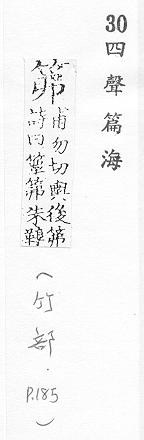 30四聲篇海
笰
甫勿切輿後笰
詩曰簟笰朱鞹
(竹部.P.185)